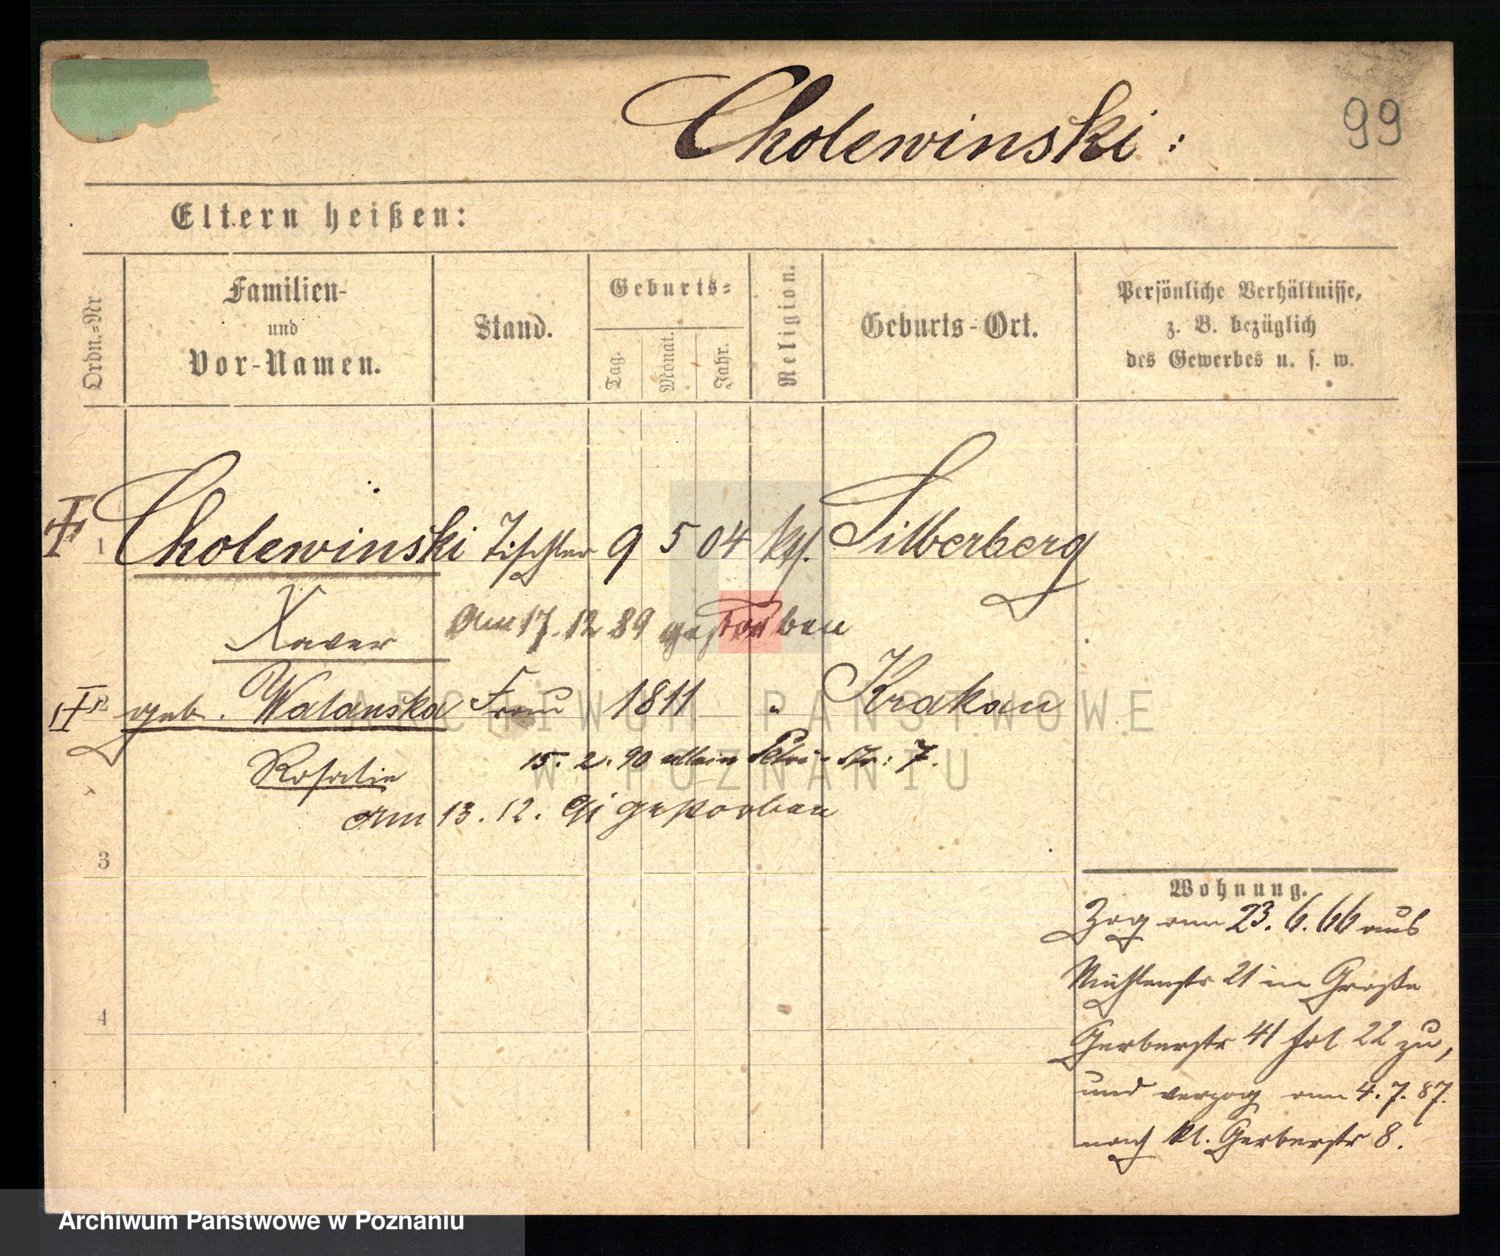 Cholewinski:
99
Eltern heißen:
Ordn.-Nr
Familien-
und
Vor-Namen.
Stand.
Geburts-
Tag.
Monat.
Jahr.
Religion.
Geburts-Ort.
Persönliche Verhältnisse,
z. B. bezüglich
des Gewerbes u. s. w.
1 Cholewinski Tischler 9 5 04 kth. Silberberg
Xaver am 17. 12 89 gestorben
2 geb. Walanska Frau 1811 " Krakau
Rosalie 15. 2. 90 allein Str: 7.
am 13. 12. 91 gestorben
3
4
Wohnung.
Zog am 23. 6. 66 aus
Mühlenstr 21 in Große
Gerberstr 41 fol 22 zu,
und verzog am 4. 7. 87.
nach kl. Gerberstr 8.
ARCHIWUM PAŃSTWOWE
W POZNANIU
Archiwum Państwowe w Poznaniu